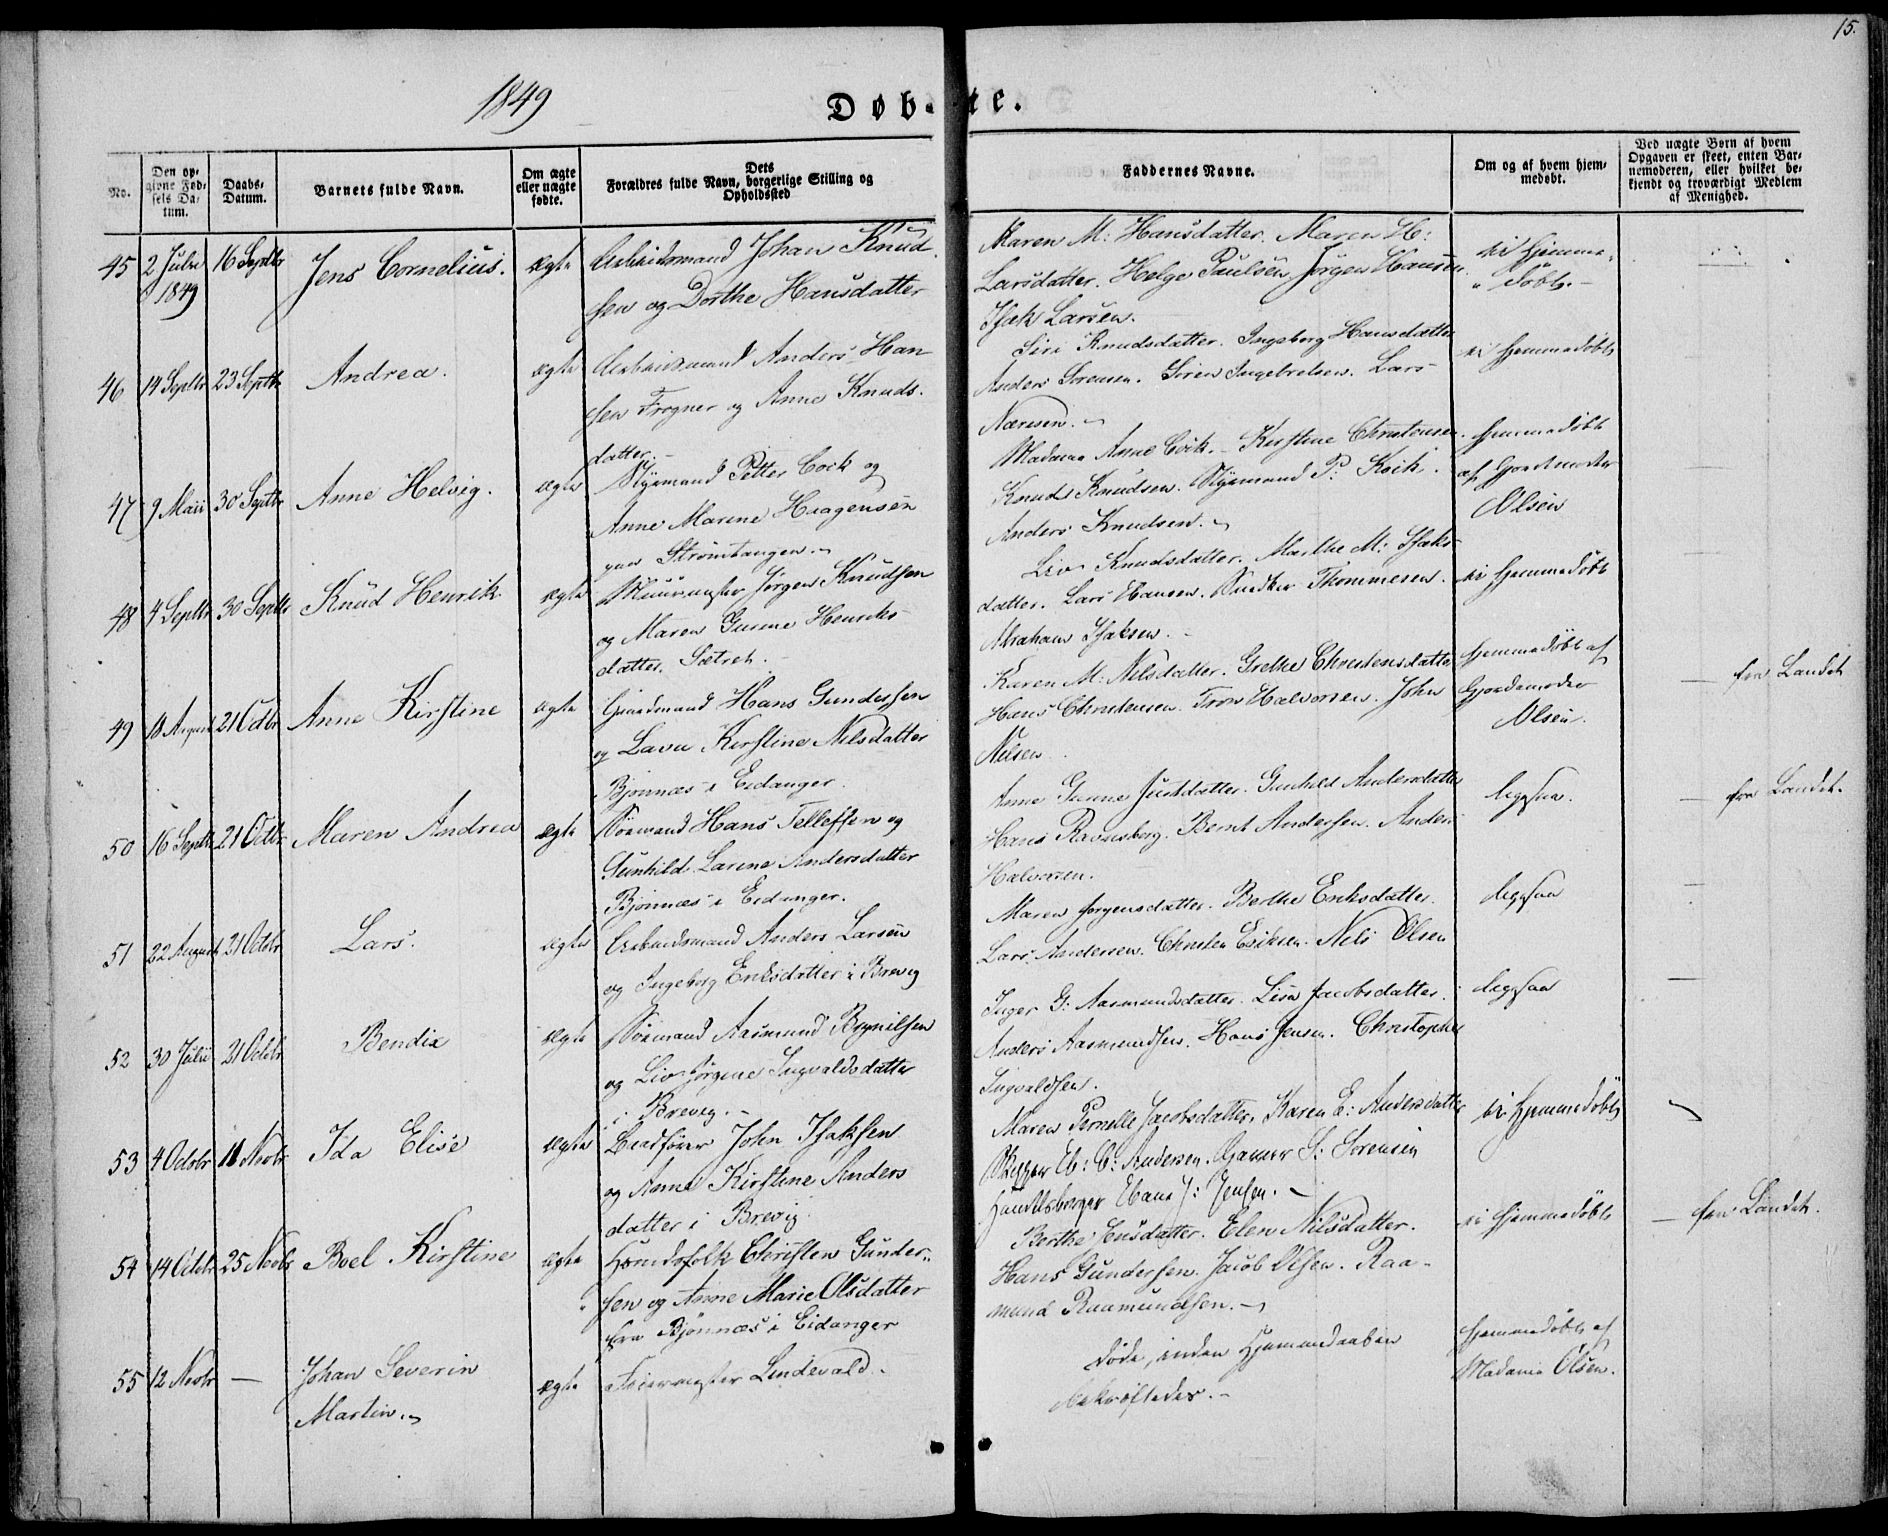 15.
1849
Døb- te.
No.
Den opgivne Fødsels Datum.
Daabs-Datum.
Barnets fulde Navn.
Om ægte eller uægte fødte.
Dets Forældres fulde Navn, borgerlige Stilling og Opholdssted
Faddernes Navne.
Om og af hvem hjemmedøbt.
Ved uægte Børn af hvem Opgaven er skeet, enten Barnemoderen, eller hvilket bekjendt og troværdigt Medlem af Menighed.
45 2 Juli 1849 16 Septbr Jens Cornelius. ægte
Arbeidsmand Johan Knud
sen og Dorthe Hansdatter
Maren M: Hansdatter. Maren H:
Larsdatter. Helge Paulsen, Jørgen Hansen
Isak Larsen.
ei hjemme
døbt.
46 14 Septbr 23 Septbr Andrea. ægte
Arbeidsmand Anders Han
sen Frogner og Anne Knuds
datter.
Siri Knudsdatter. Ingeborg Hansdatter
Anders Sorensen. Søren Ingebretsen. Lars
ei hjemmedøbt
47 9 Maii 30 Septbr Anne Helvig. ægte
Styrmand Petter Coik og
Anne Marine Haagensen
paa Strømtangen.
Madame Anne Coik. Kirstine Christensen.
Knud Knudsen. Styrmand P: Koik.
Anders Knudsen.
hjemmedøbt
af Gjordmoder
Olsen
48 4 Septbr 30 Septbr Knud Henrik ægte
Muurmester Jørgen Knudsen
og Maren Gurine Henriks
datter. Sætret.
Liv Knudsdatter. Marthe M: Isaks
datter. Lars Hansen. Thommesen.
Abraham Isaksen.
ei hjemmedøbt
49 18 August 21 Octbr Anne Kirstine ægte
Gaardmand Hans Gundersen
og Lava Kirstine Nilsdatter
Bjønnæs i Eidanger.
Karen M: Nilsdatter. Grethe Christensdatter
Hans Christensen. Tron Halvorsen. John
Nilsen
hjemmedøbt af
Gjordemoder
Olsen.
fra Landet
50 16 Septbr 21 Octbr Maren Andrea ægte
Sømand Hans Tellefsen og
Gunhild Larine Andersdatter
Bjønnæs i Eidanger.
Anne Gurine Justdatter. Gunhild Andersdatter
Hans Ravnsberg. Bernt Andersen. Anders
Halvorsen.
ligesaa.
fra Landet.
51 22 August 21 Octbr Lars. ægte
Arbeidsmand Anders Larsen
og Ingeborg Eriksdatter i Brevig
Maren Jørgensdatter. Berthe Eriksdatter.
Lars Andersen. Christen Eriksen. Nils Olsen
ligesaa
52 30 Juli 21 Octbr Bendix ægte
Sømand Aasmund Brynilsen
og Liv Jørgine Ingvaldsdatter
i Brevig.
Inger G: Aasmundsdatter. Lisa Jacobsdatter.
Anders Aasmundsen. Hans Jensen. Christopher
Ingvaldsen.
ligesaa
53 4 Octobr 11 Novbr Ida Elise ægte
John Isaksen
og Anne Kirstine Anders
datter i Brevig
Maren Pernelle Jacobsdatter. Karen E: Andersdatter
Skipper C: Andersen. S: Sorensen
Handelsborger J: Jensen.
ei hjemmedøbt
54 14 Octobr 25 Novbr Boel Kirstine ægte
Huusfolk Christen Gunder-
sen og Anne Marie Olsdatter
fra Bjønnæs i Eidanger
Berthe datter. Elen Nilsdatter.
Hans Gundersen. Jacob Olsen. Raa-
mund Raamundsen.
ei hjemmedøbt
fra Landet.
55 12 Novbr — Johan Severin
Martin. ægte
Feiermester Lindevald.
døde, inden Hjemmedaaben
bekræftedes.
hjemmedøbt af
Madame Olsen.